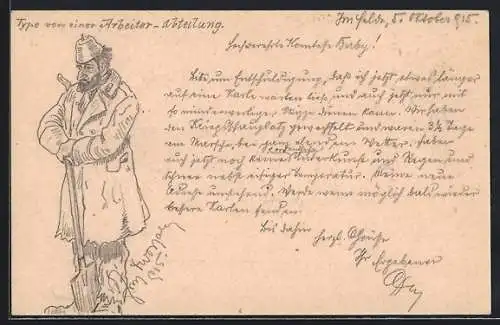 Type von einer Arbeiter-Abteilung.
Im Felde, 5. Oktober 915.
Hochverehrte Komtesse Gaby!
Bitte um Entschuldigung, daß ich jetzt etwas länger
auf eine Karte warten ließ und auch jetzt nur mit
so minderwertiger Ware dienen kann. Wir haben
den Kriegsschauplatz gewechselt und waren 3½ Tage
am Marsche, bei ganz elendem Wetter. Haben
auch jetzt noch keine ordentliche Unterkünfte und Regen und
Schnee nebst eisiger Temperatur. Meine neue
Adresse umstehend. Werde wenn möglich bald wieder
bessere Karten senden.
Bis dahin
herzl. Grüße
Ihr Ergebener